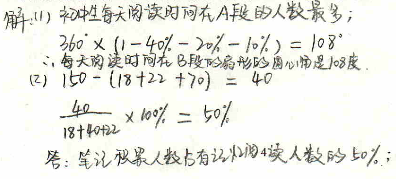 解:(1) 初中生每天阅读时间在A段的人数最多;
360°×(1-40%-20%-10%)=108°
∴每天阅读时间在B段的扇形的圆心角是108度.
(2) 150-(18+22+70)=40
40/(18+40+22)×100%=50%
答:笔记积累人数占有记忆阅读人数的50%;